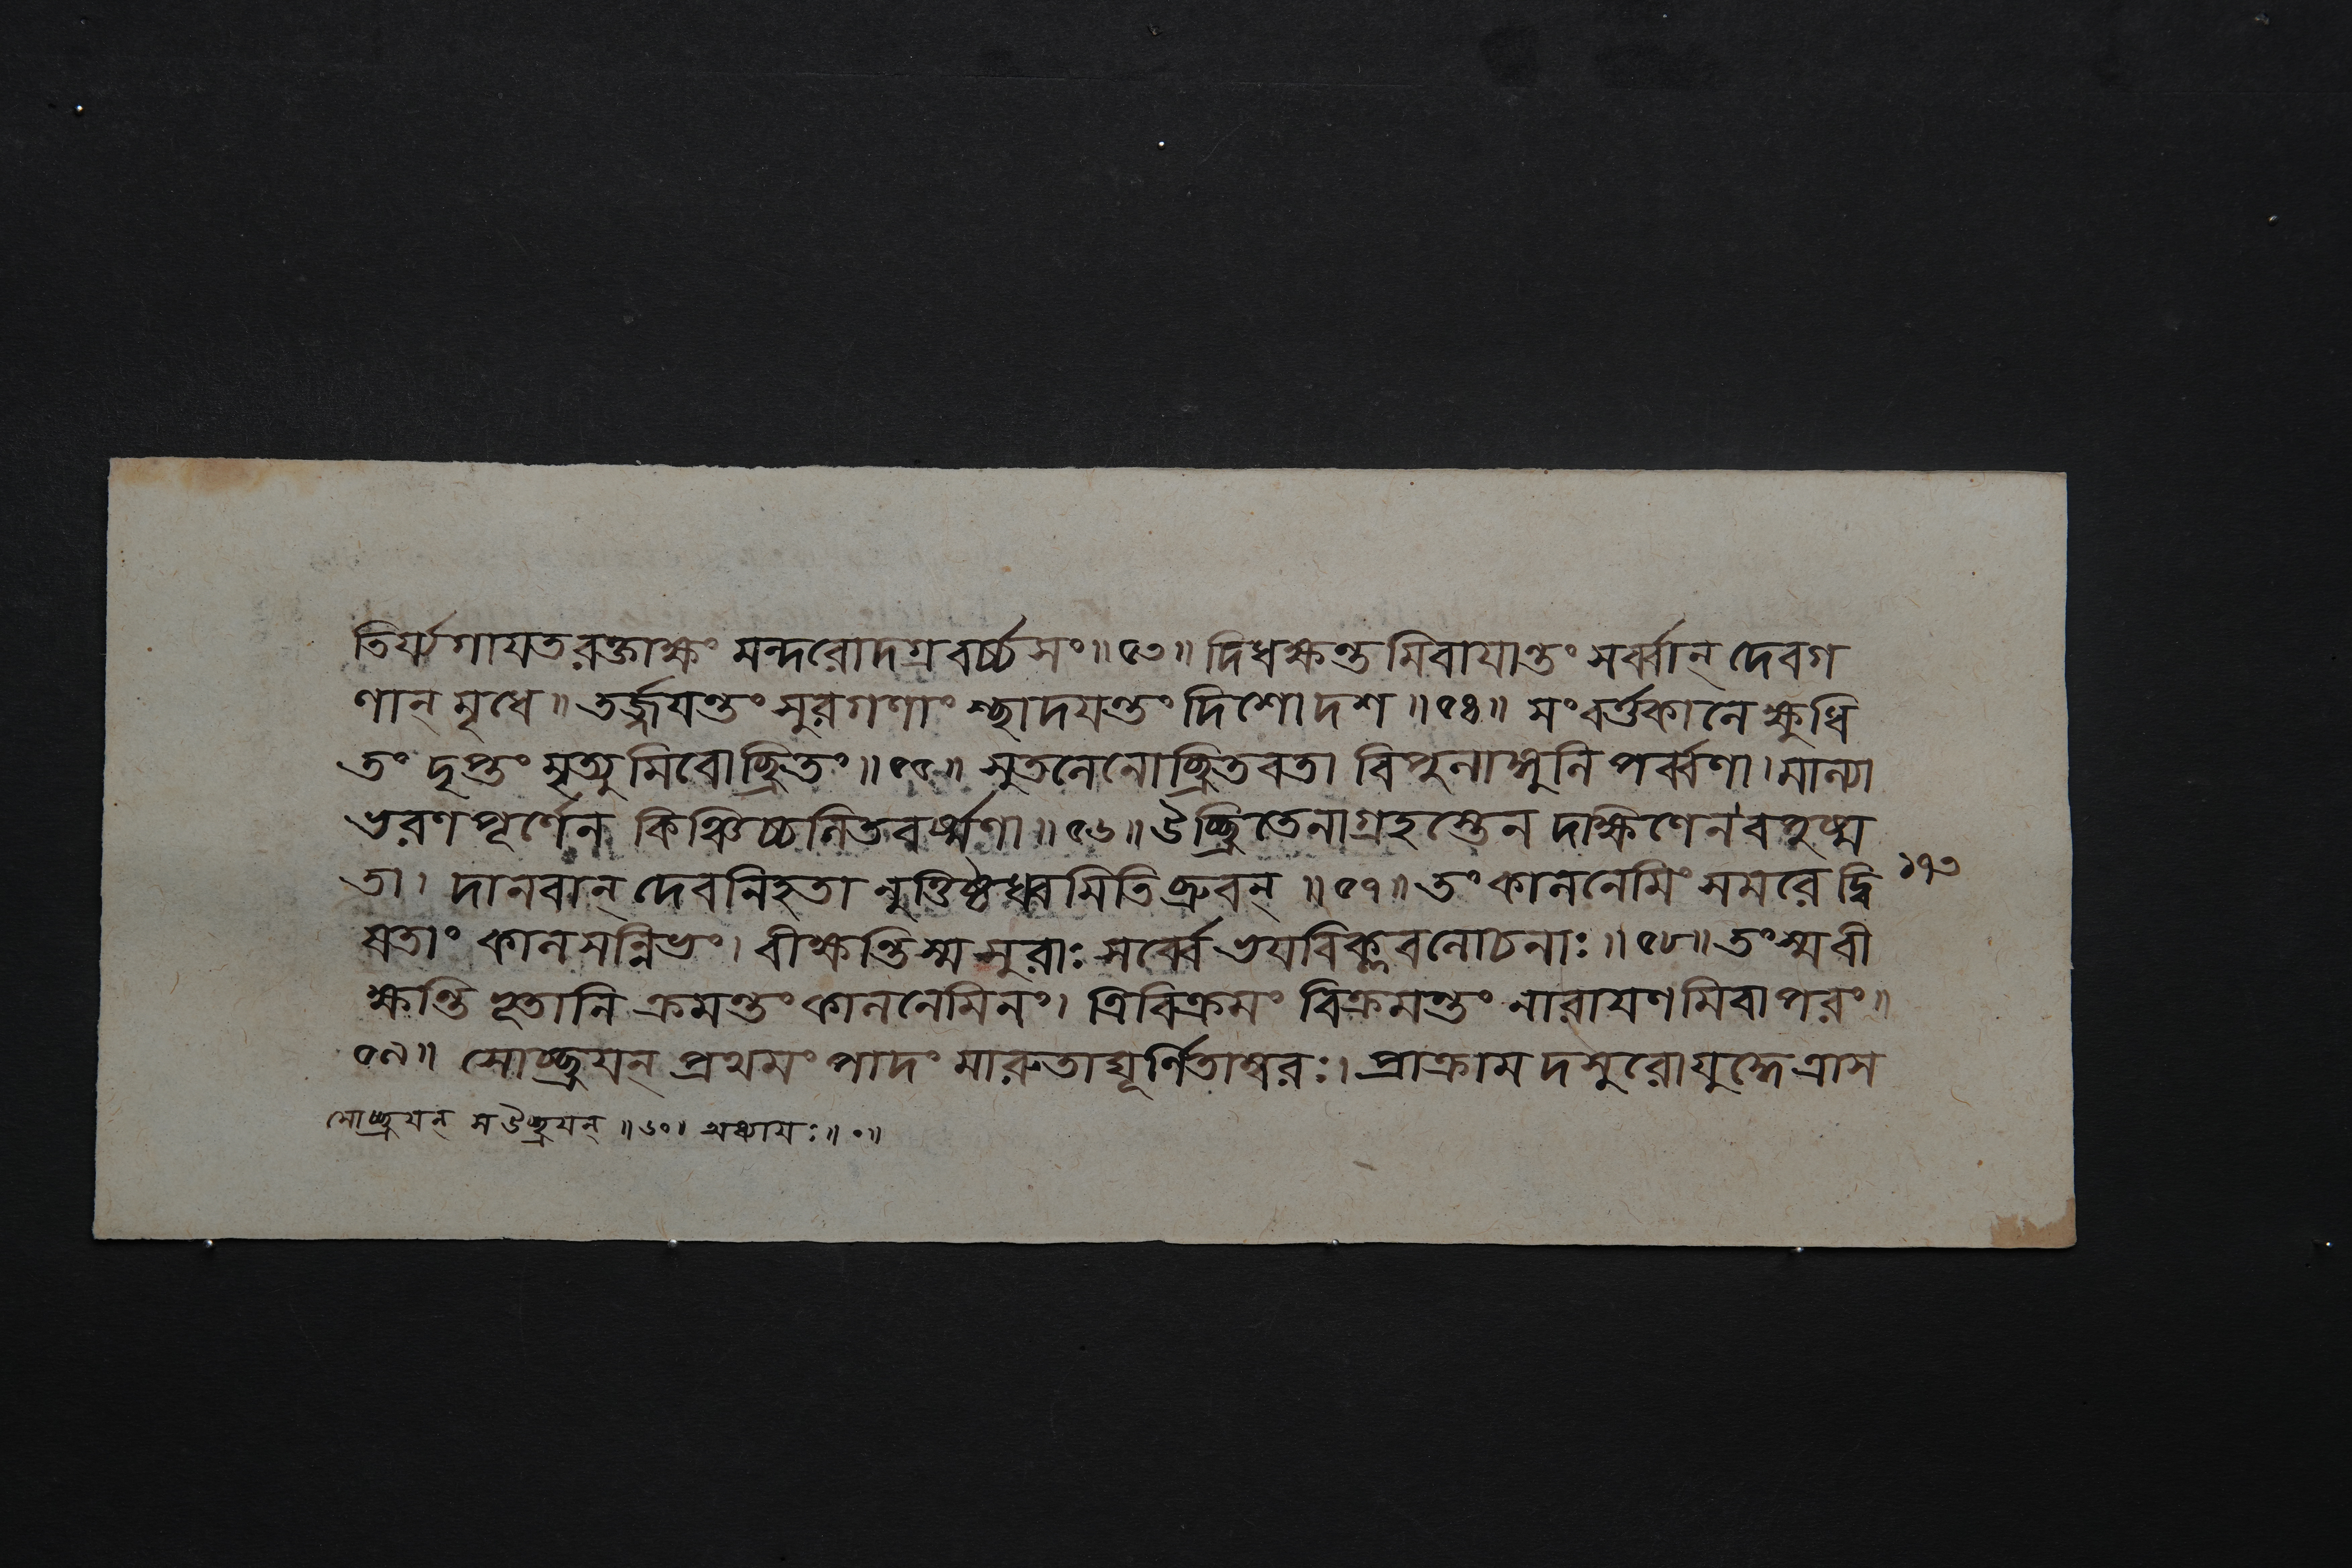 তির্য্যগাযতরক্তাক্ষং মন্দরোদগ্রবর্চ্চসং॥৫৩॥ দিধক্ষন্তমিবাযান্তং সর্ব্বান্ দেবগ
ণান্ মৃধে॥ তর্জ্জযন্তং সুরগণাংশ্ছাদযন্তং দিশোদশ॥৫৪॥ সংবর্ত্তকালে ক্ষুধি
তং দৃপ্তং মৃত্যুমিবোচ্ছ্রিতং॥৫৫॥ সুতলেনোচ্ছ্রিতবতা বিপুলাঙ্গুলিপর্ব্বণা। মাল্যা
ভরণপূর্ণেন কিঞ্চিচ্চলিতবর্ষ্মণা॥৫৬॥ উচ্ছ্রিতেনাগ্রহস্তেন দক্ষিণেন বপুষ্ম
তা। দানবান্ দেবনিহতানুত্তিষ্ঠধ্বমিতি ব্রুবন্॥৫৭॥ তং কালনেমিং সমরে দ্বি ১৭৩
ষতাং কালসন্নিভং। বীক্ষন্তিস্ম সুরাঃ সর্ব্বে ভযবিক্লবলোচনাঃ॥৫৮॥ তংস্ম বী
ক্ষন্তি ভূতানি ক্রমন্তং কালনেমিনং। ত্রিবিক্রমং বিক্রমন্তং নারাযণমিবাপরং॥
৫৯॥ সোচ্ছ্রযন্ প্রথমং পাদং মারুতাঘূর্ণিতাম্বরঃ। প্রাক্রামদসুরোযুদ্ধে ত্রাস
সোচ্ছ্রযন্ স উচ্ছ্রযন্॥৬০॥ অধ্যাযঃ॥০॥